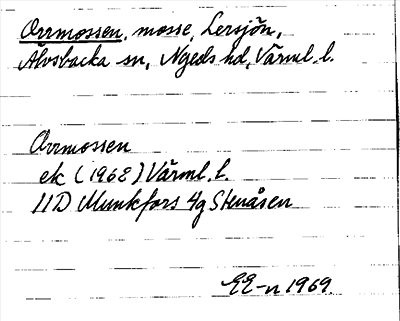 Orrmossen, mosse, Lersjön,
Älvsbacka sn, Nyeds hd, Värml. l.
Orrmossen
ek (1968) Värml. l.
11D Munkfors 4g Stenåsen
EE-n 1969.